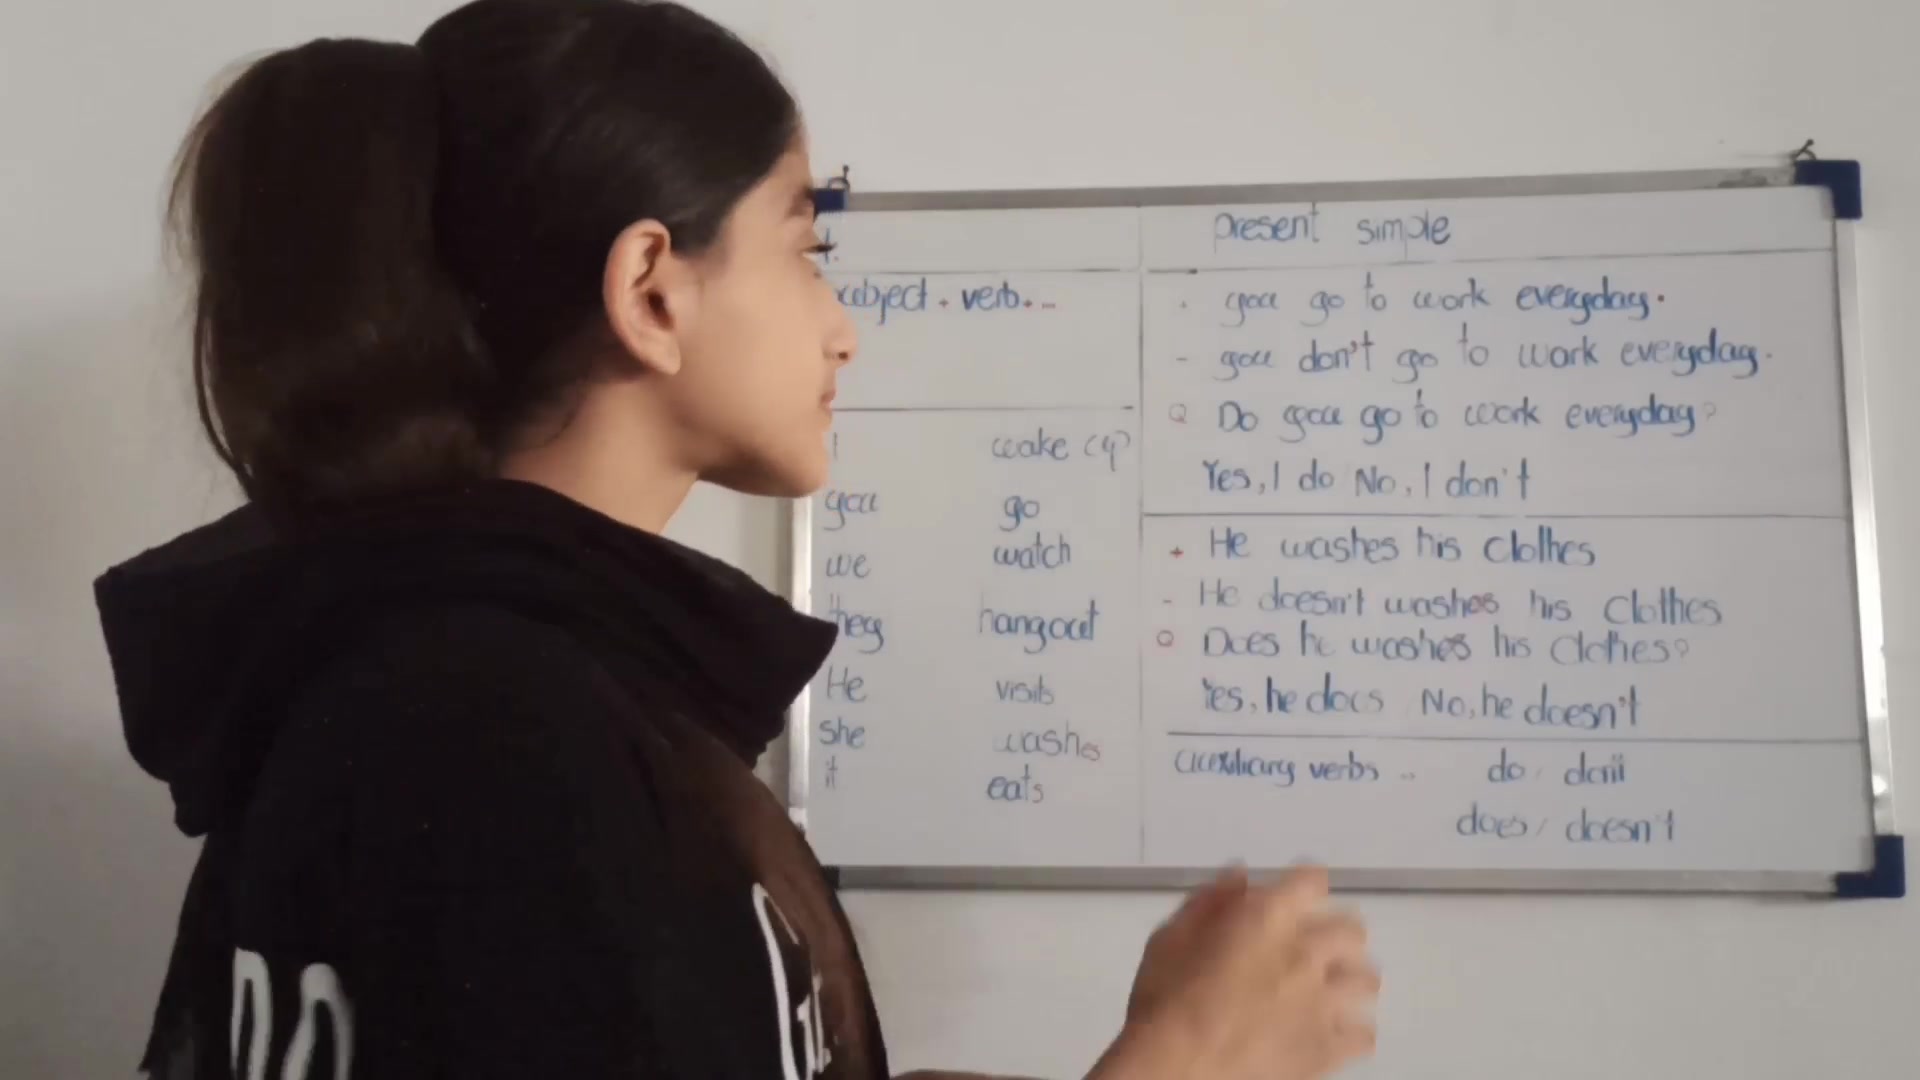 present simple
subject + verb + ...
I wake (up)
you go
we watch
they hangout
He visits
she washes
it eats
+ you go to work everyday.
- you don't go to work everyday.
Q Do you go to work everyday?
Yes, I do No, I don't
+ He washes his clothes
- He doesn't washes his clothes
Q Does he washes his clothes?
Yes, he does No, he doesn't
auxiliary verbs .. do / don't
does / doesn't